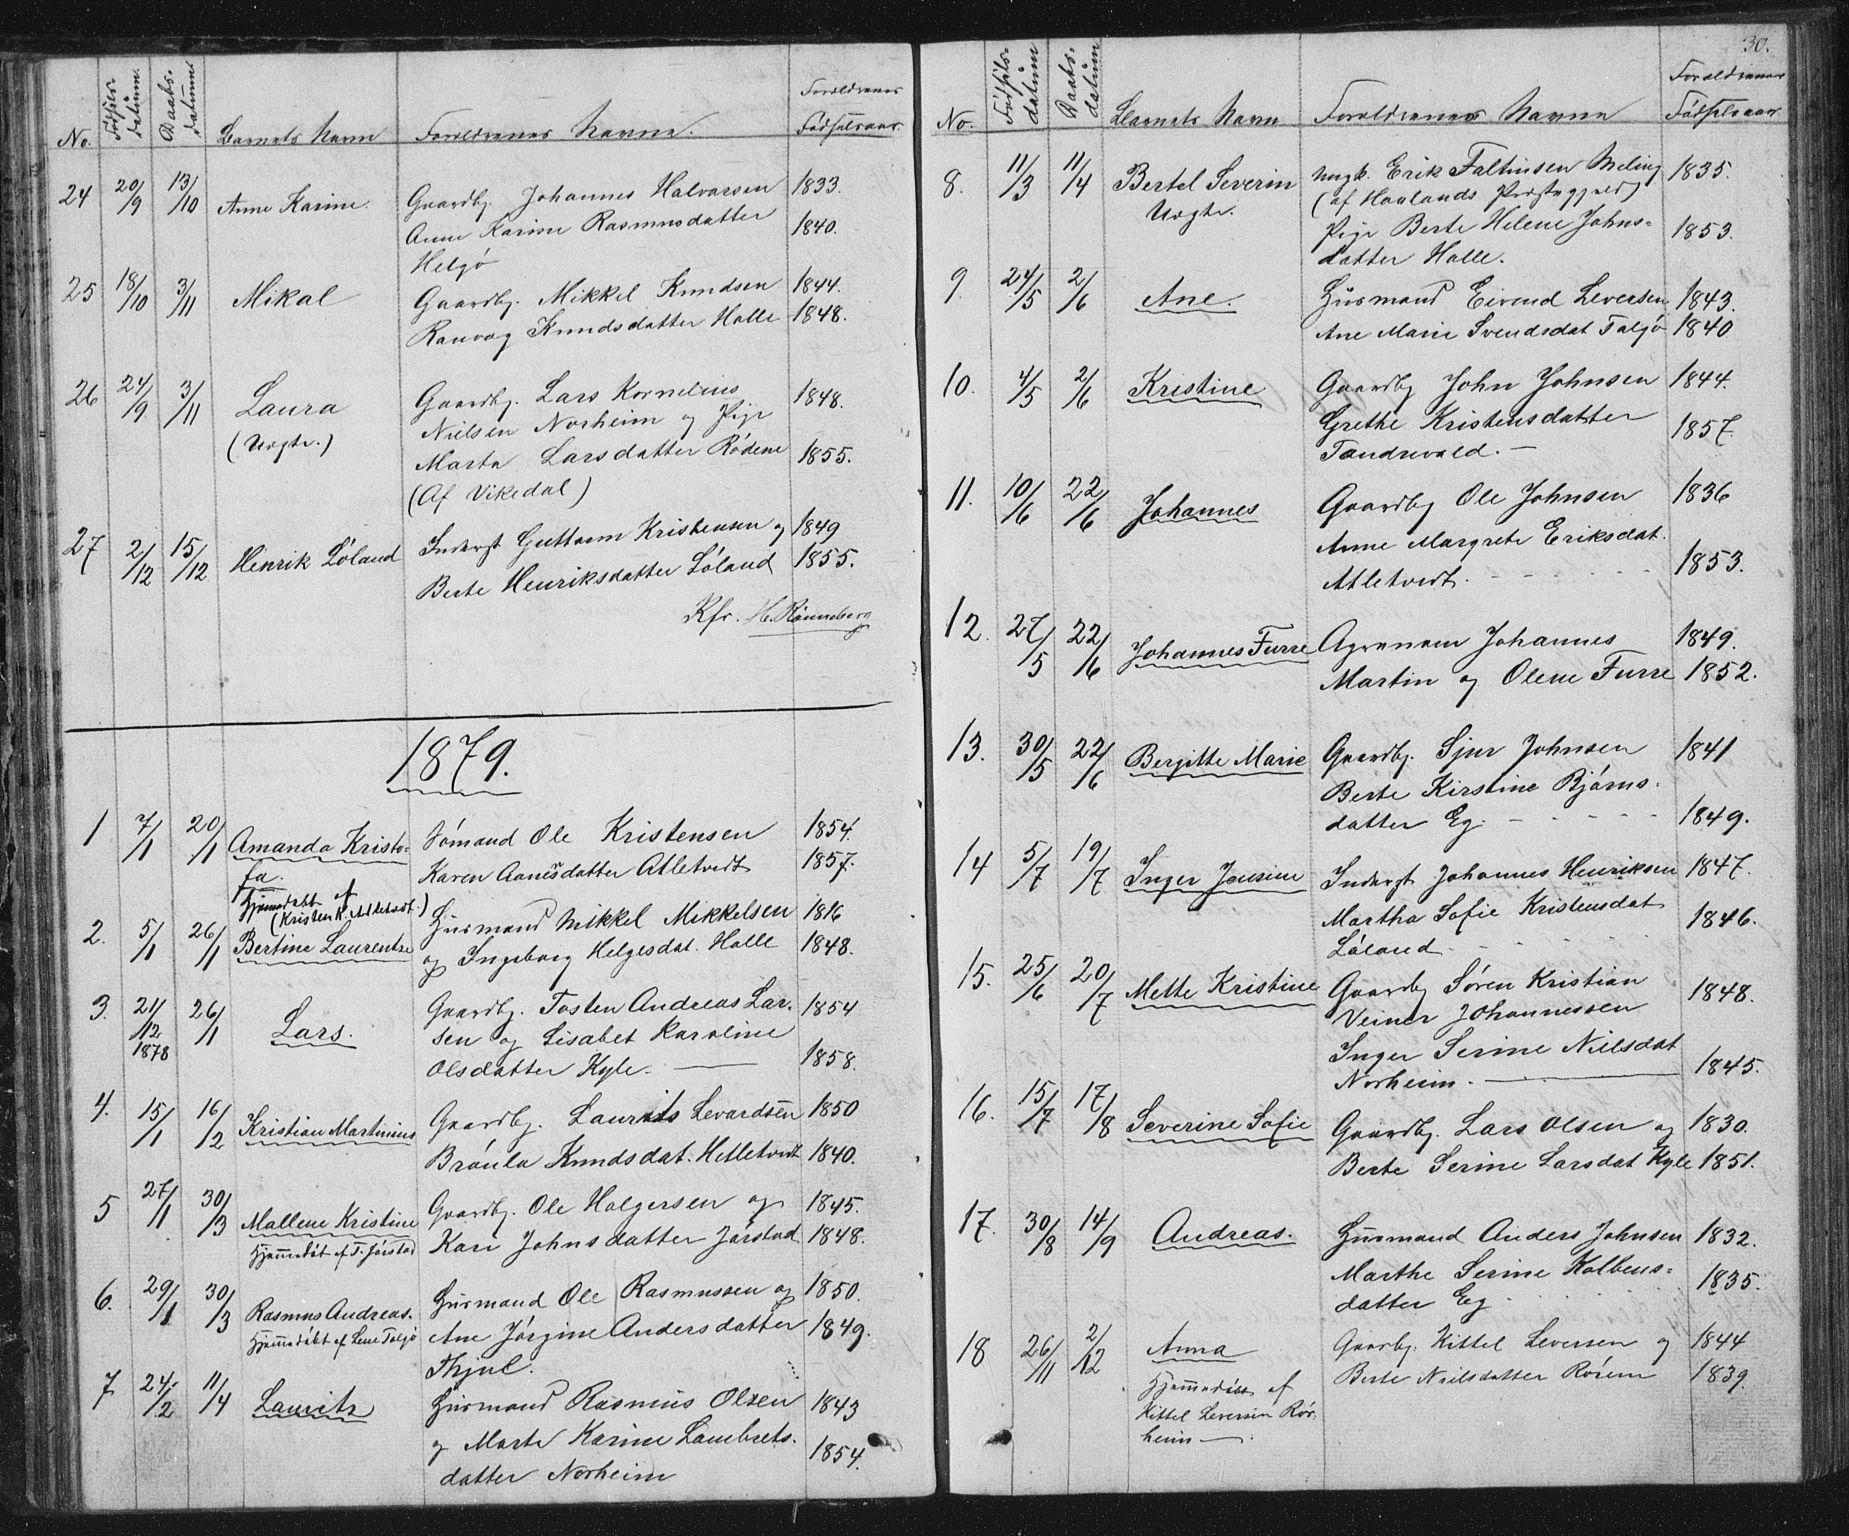 No. Fødsels-datum. Daabs-datum Barnets Navn Forældrenes Navne. Forældrenes Fødselsaar.
24 20/9 13/10 Anne Karine. Gaardbr. Johannes Halvorsen 1833.
Anne Karine Rasmusdatter 1840.
Helgø
25 18/10 3/11 Mikal Gaardbr. Mikkel Knudsen 1844.
Ranvog Knudsdatter Halle 1848.
26 24/9. 3/11 Laura Gaardbr. Lars Kornelius 1848.
(Uægte.) Nielsen Norheim og Pige
Marta Larsdatter Rødene 1855.
(Af Vikedal)
27 2/12 15/12 Henrik Løland Inderst Guttorm Kristensen og 1849
Berte Henriksdatter Løland 1855.
Kfr. H. Rønneberg
1879.
1 7/1 20/1 Amanda Kristo- Sømand Ole Kristensen 1854.
fa. Karen Aanesdatter Atletvedt 1857.
Hjemmedøbt af
(Kristen K. Atletvedt.)
2. 5/1 26/1 Bertine Laurentze Husmand Mikkel Mikkelsen 1816
og Ingeborg Helgesdat. Halle 1848.
3. 21/12 1878 26/1 Lars. Gaardbr. Tosten Andreas Lar- 1854
sen og Lisabet Karoline
Olsdatter Kyle. — 1858.
4. 15/1 16/2 Kristian Martinius Gaardbr. Laurits Levardsen 1850
Brønla Knudsdat. Hetletvedt 1840.
5 27/1 30/3 Mallene Kristine Gaardbr. Ole Holgersen og 1845.
Hjemmedøbt af T. Jørstad Kari Johnsdatter Jørstad 1848.
6. 29/1 30/3 Rasmus Andreas. Husmand Ole Rasmussen og 1850.
Hjemmedøbt af Lene Talgø Ane Jørgine Andersdatter 1849.
Thjul.
7 24/2 11/4 Lauritz Husmand Rasmus Olsen 1843
og Marte Karine Lambrets-
datter Norheim 1854.
30.
No. Fødsels-datum Daabs-datum Barnets Navn Forældrenes Navne Forældrenes Fødselsaar
8. 11/3 11/4 Bertel Severin Ungk. Erik Faltinsen Meling 1835.
Uægte. (af Haalands Præstegjeld)
Pige Berte Helene Johns- 1853.
datter Halle.
9. 24/5 2/6 Ane. Husmand Eivend Leversen 1843.
Ane Marie Svendsdat Talgø 1840
10. 4/5 2/6 Kristine Gaardbr John Johnsen 1844.
Grethe Kristensdatter 1857.
Tandrevald. —
11. 10/6 22/6 Johannes Gaardbr Ole Johnsen 1836
Anne Margrete Eriksdat.
Atletvedt. 1853.
12. 27/5 22/6 Johannes Furre Agronom Johannes 1849.
Martin og Olene Furre 1852.
13. 30/5 22/6 Bergitte Marie Gaardbr. Sjur Johnsen 1841
Berte Kirstine Bjørns-
datter Eg. 1849.
14 5/7 19/7 Inger Jensine Inderst Johannes Henriksen 1847.
Martha Sofie Kristensdat 1846.
Løland
15. 25/6 20/7 Mette Kristine Gaardbr Søren Kristian 1848.
Veiner Johannessen
Inger Serine Nielsdat 1845.
Norheim. —
16. 15/7 17/8 Severine Sofie Gaardbr. Lars Olsen og 1830.
Berte Serine Larsdat Kyle 1851.
17. 30/8 14/9 Andreas. Husmand Anders Johnsen 1832.
Marthe Serine Kolbens- 1835.
datter Eg
18 26/11 2/12 Anna Gaardbr. Kittel Leversen og 1844
Hjemmedøbt af Berte Nielsdatter Rørem 1839.
Kittel Leversen Rør-
heim —.